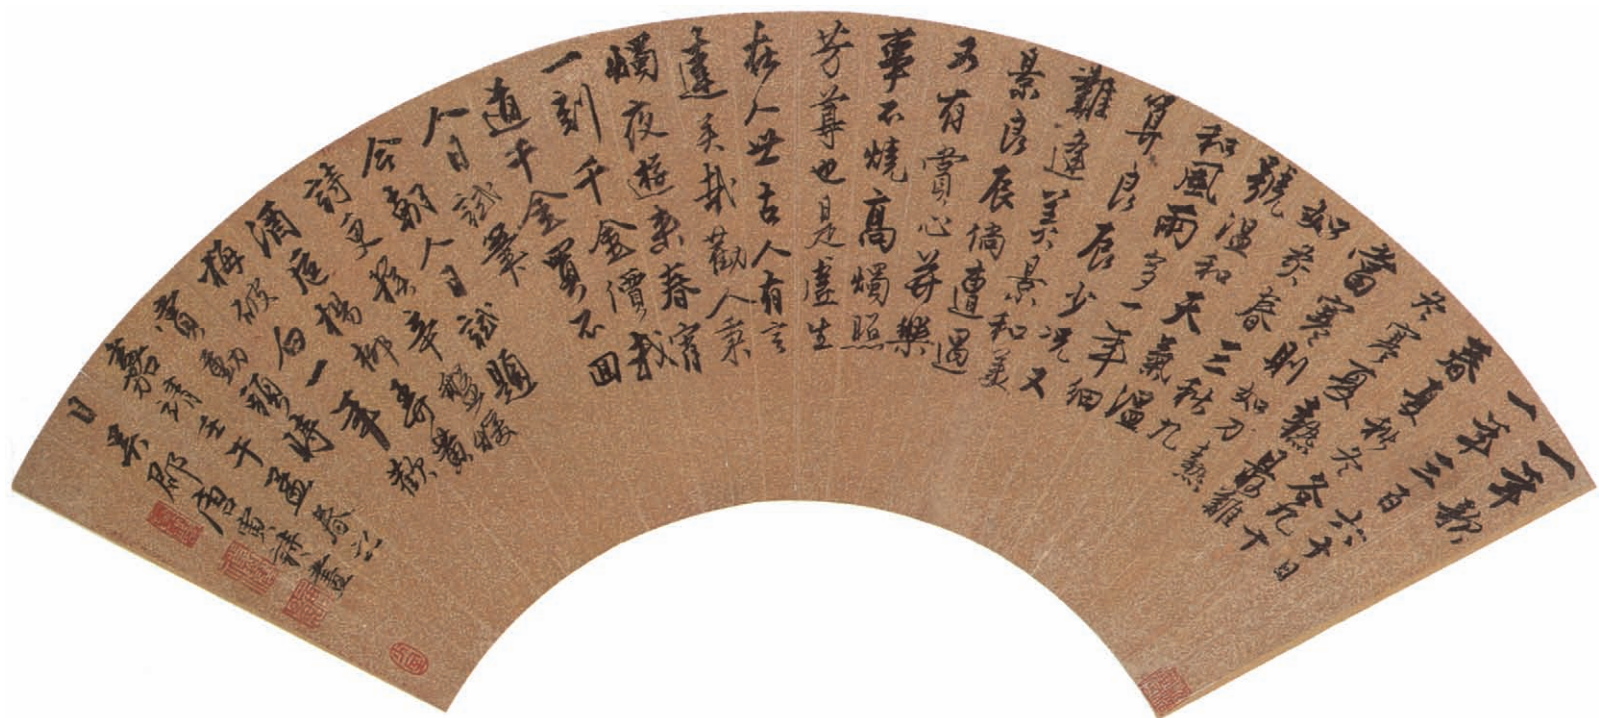 一年歌
一年三百六十日
春夏秋冬各九十
冬寒夏熱最難
當寒則如刀熱
如炙春三秋九
號溫和天氣溫
和風雨多一年細
算良辰少況又
難逢美景和美
景良辰倘遭遇
又有賞心并樂
事不燒高燭照
芳尊也是虛生
在人世古人有言
達矣哉勸人秉
燭夜遊來春宵
一刻千金價我
道千金買不回
人日試筆
今朝人日試題
詩更接辛盤煖
酒卮楊柳弄黃
梅破白一年歡
賞動頭時
嘉靖壬午孟春六
日吳郡唐寅并畫